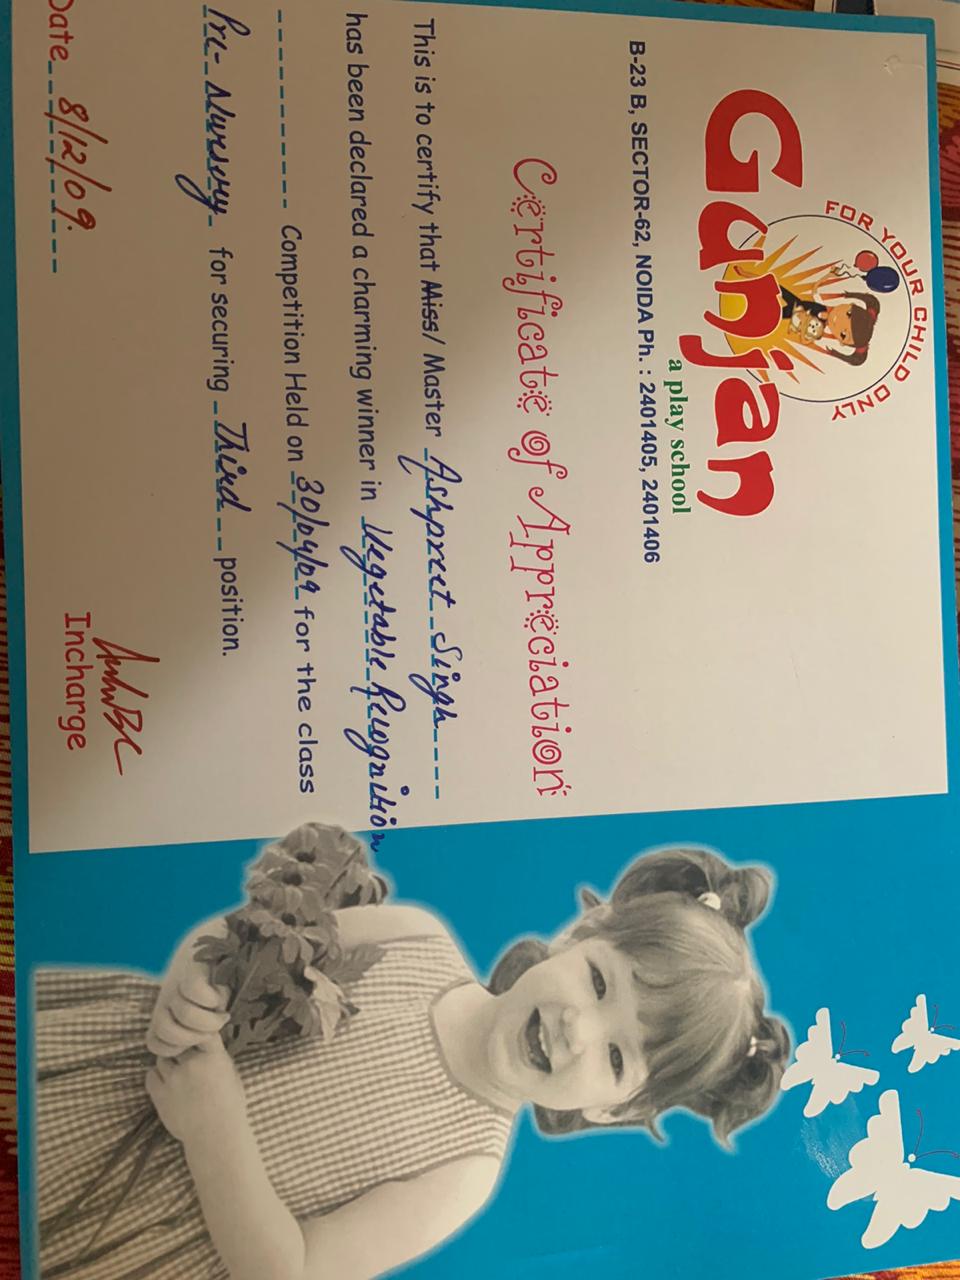 FOR YOUR CHILD ONLY
Gunjan
a play school
B-23 B, SECTOR-62, NOIDA Ph. : 2401405, 2401406
Certificate of Appreciation
This is to certify that Miss/ Master Ashpreet Singh
has been declared a charming winner in Vegetable Recognition
Competition Held on 30/04/09 for the class
Pre-Nursery for securing Third position.
Date 8/12/09.
Incharge